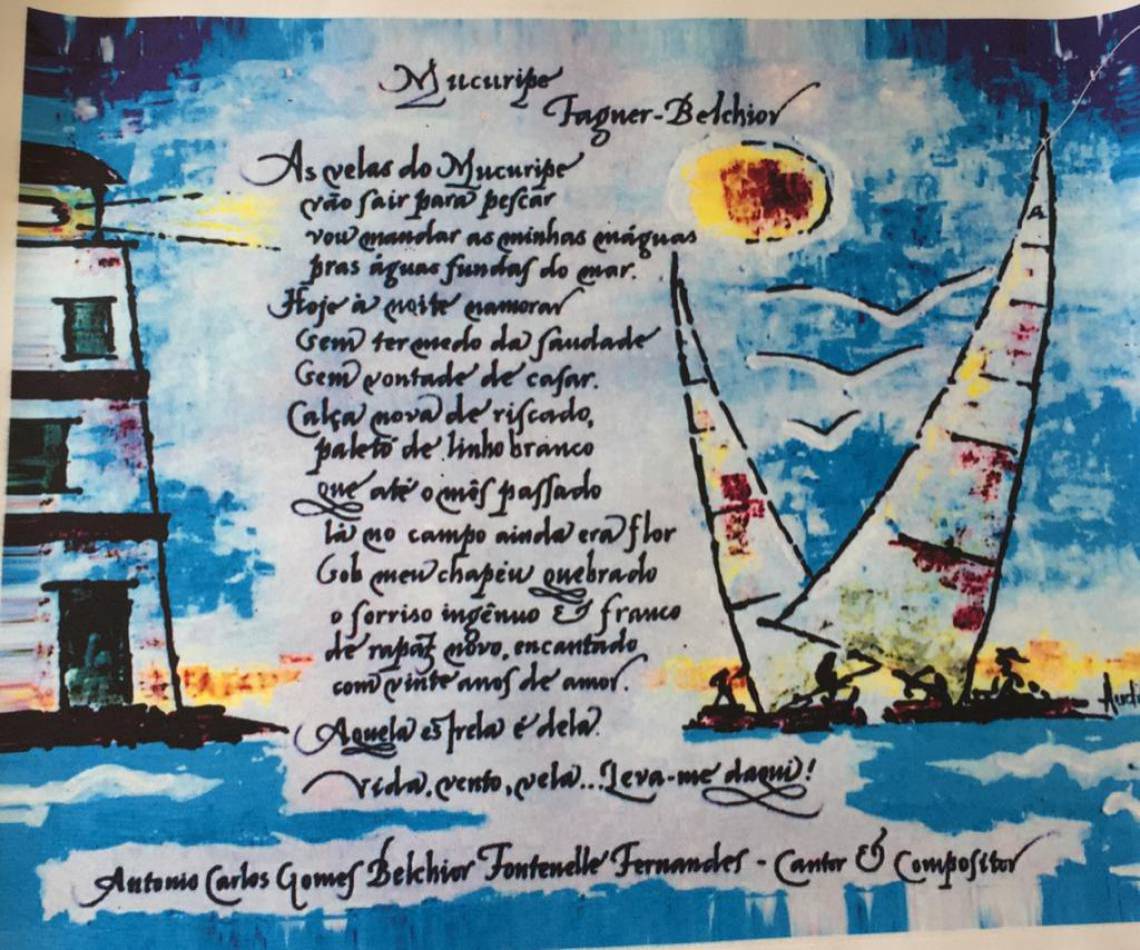 Mucuripe
Fagner-Belchior
As velas do Mucuripe
vão sair para pescar
vou mandar as minhas máguas
pras águas fundas do mar.
Hoje à noite namorar
Sem ter medo da saudade
Sem vontade de casar.
Calça nova de riscado,
paletó de linho branco
que até o mês passado
lá no campo ainda era flor
Sob meu chapéu quebrado
o sorriso ingênuo & franco
de rapaz novo, encantado
com vinte anos de amor.
Aquela estrela é dela.
Vida, vento, vela...Leva-me daqui!
Antonio Carlos Gomes Belchior Fontenelle Fernandes - Cantor & Compositor